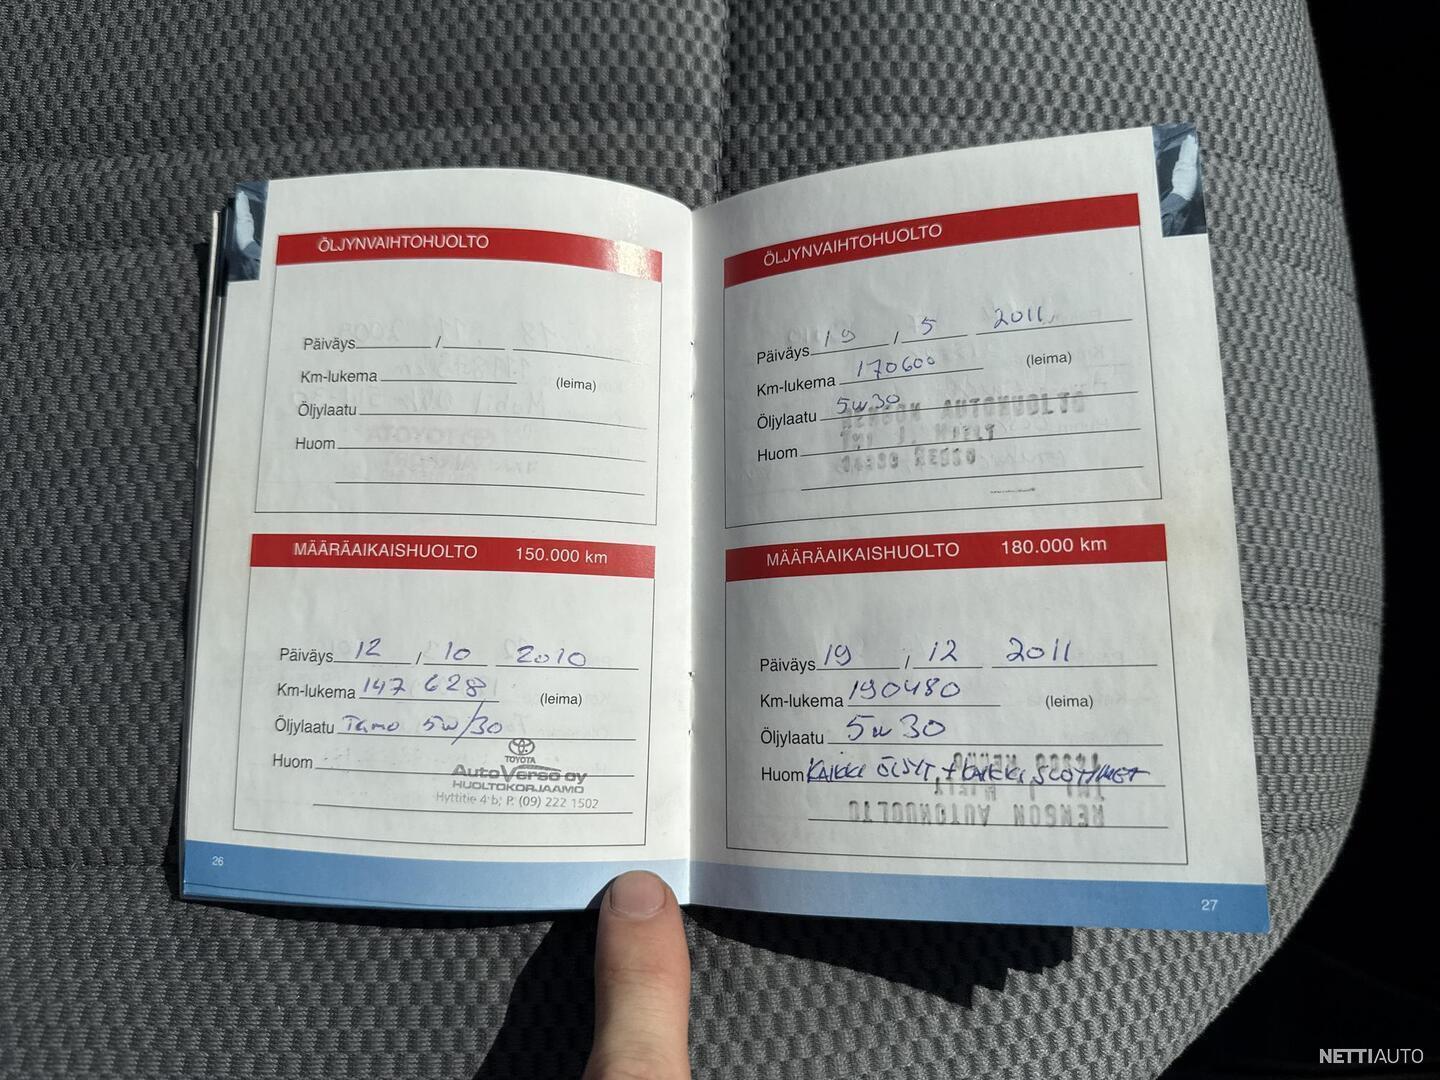 ÖLJYNVAIHTOHUOLTO
Päiväys / 
Km-lukema (leima)
Öljylaatu
Huom
MÄÄRÄAIKAISHUOLTO 150.000 km
Päiväys 12 / 10 2010
Km-lukema 147 628 (leima)
Öljylaatu 5w/30
Huom
TOYOTA
AutoVerso oy
HUOLTOKORJAAMO
Hyttitie 4 b; P. (09) 222 1502
26
ÖLJYNVAIHTOHUOLTO
Päiväys 19 / 5 2011
Km-lukema 170600 (leima)
Öljylaatu 5w30
AUTOHUOLTO
Huom
MÄÄRÄAIKAISHUOLTO 180.000 km
Päiväys 19 / 12 2011
Km-lukema 190480 (leima)
Öljylaatu 5w30
Huom KAIKKI ÖLJYT + KAIKKI SUOTTIMET
AUTOHUOLTO
27
NETTIAUTO